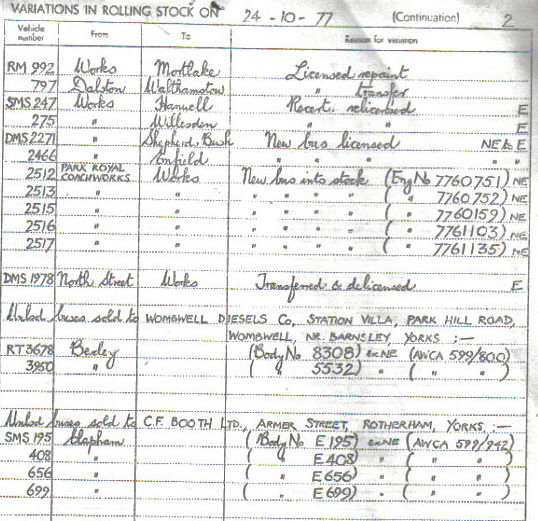 VARIATIONS IN ROLLING STOCK ON 24-10-77 (Continuation) 2
Vehicle number From To Reason for variation
RM 992 Works Mortlake Licensed repaint
797 Dalston Walthamstow " transfer
SMS 247 Works Hanwell Recert. relicensed E
275 " Willesden " " E
DMS 2271 " Shepherd's Bush New bus licensed NE to E
2466 " Enfield " " " " "
2512 PARK ROYAL COACHWORKS Works New bus into stock (Eng No 7760751) NE
2513 " " " " " " ( " 7760752) NE
2515 " " " " " " ( " 7760159) NE
2516 " " " " " " ( " 7761103) NE
2517 " " " " " " ( " 7761135) NE
DMS 1978 North Street Works Transferred & delicensed E
Unlsd buses sold to WOMBWELL DIESELS Co, STATION VILLA, PARK HILL ROAD,
WOMBWELL, NR. BARNSLEY, YORKS :—
RT 3678 Bexley (Body No 8308) ex NE (AWCA 599/800)
3950 " ( " 5532) " ( " " )
Unlsd buses sold to C.F. BOOTH LTD., ARMER STREET, ROTHERHAM, YORKS :—
SMS 195 Clapham (Body No E 195) ex NE (AWCA 599/942)
408 " ( " E 408) " ( " " )
656 " ( " E 656) " ( " " )
699 " ( " E 699) " ( " " )